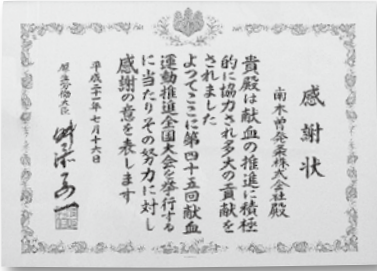 感謝状
南木曽発条株式会社殿
貴殿は献血の推進に積極
的に協力され多大の貢献を
されました
よってここに第四十五回献血
運動推進全国大会を挙行する
に当たりその努力に対し
感謝の意を表します
平成二十一年七月十六日
厚生労働大臣
舛添要一